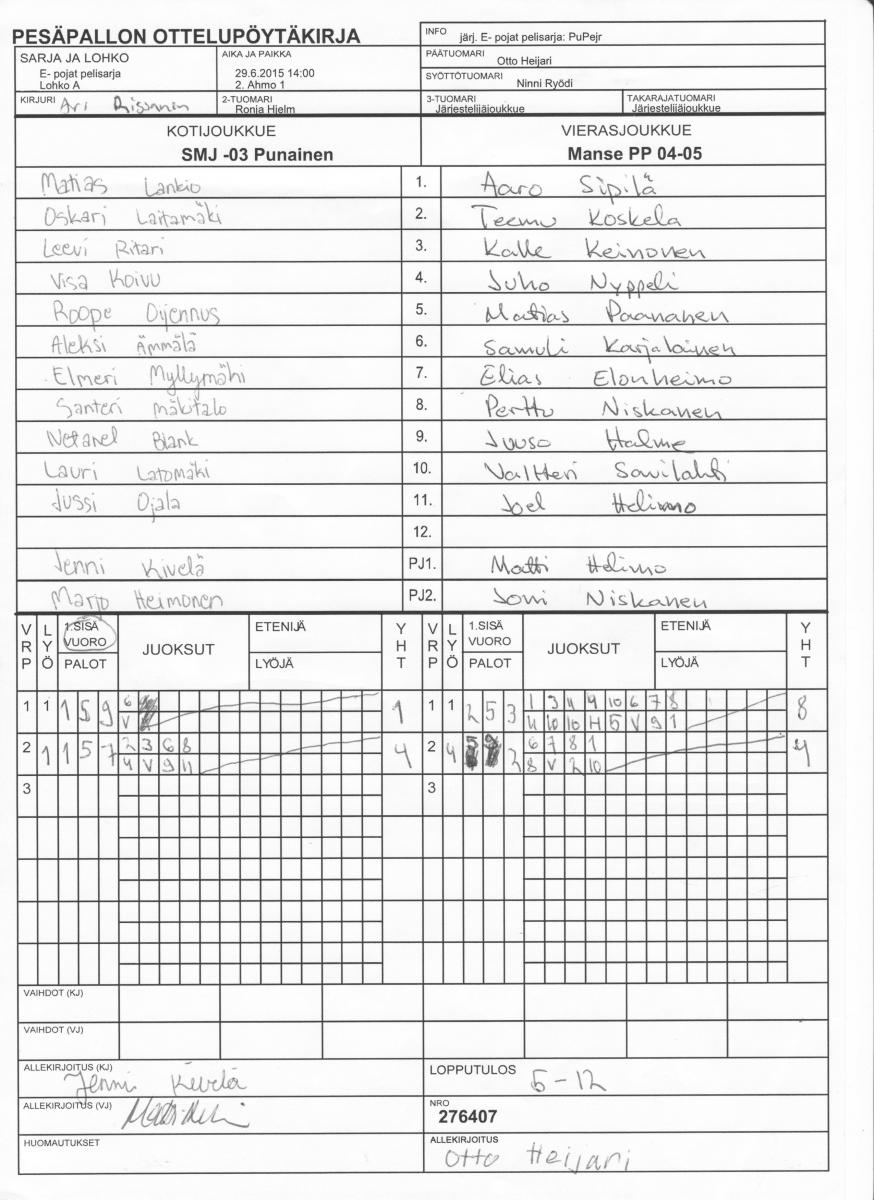 PESÄPALLON OTTELUPÖYTÄKIRJA
INFO järj. E- pojat pelisarja: PuPejr
SARJA JA LOHKO
E- pojat pelisarja
Lohko A
AIKA JA PAIKKA
29.6.2015 14:00
2. Ahmo 1
PÄÄTUOMARI Otto Heijari
SYÖTTÖTUOMARI Ninni Ryödi
KIRJURI Ari Rissanen
2-TUOMARI
Ronja Hjelm
3-TUOMARI
Järjestelijäjoukkue
TAKARAJATUOMARI
Järjestelijäjoukkue
KOTIJOUKKUE
SMJ -03 Punainen
VIERASJOUKKUE
Manse PP 04-05
Matias Lankio 1. Aaro Sipilä
Oskari Laitamäki 2. Teemu Koskela
Leevi Ritari 3. Kalle Keinonen
Visa Koivu 4. Juho Nyppeli
Roope Ojennus 5. Matias Paananen
Aleksi Ämmälä 6. Samuli Karjalainen
Elmeri Myllymäki 7. Elias Elonheimo
Santeri Mäkitalo 8. Perttu Niskanen
Netanel Blank 9. Juuso Halme
Lauri Latomäki 10. Valtteri Savilahti
Jussi Ojala 11. Joel Helimo
12.
Jenni Kivelä PJ1. Matti Helimo
Marjo Heimonen PJ2. Joni Niskanen
VRP LYÖ 1.SISÄ VUORO PALOT JUOKSUT ETENIJÄ LYÖJÄ YHT VRP LYÖ 1.SISÄ VUORO PALOT JUOKSUT ETENIJÄ LYÖJÄ YHT
1 1 1 5 9 6 1 1 1 2 5 3 1 3 4 9 10 6 7 8 8
V 4 10 10 H 5 V 9 1
2 1 1 5 7 2 3 6 8 4 2 4 2 6 7 8 1 4
4 V 9 11 8 V 2 10
3 3
VAIHDOT (KJ)
VAIHDOT (VJ)
ALLEKIRJOITUS (KJ) Jenni Kivelä
LOPPUTULOS 5-12
ALLEKIRJOITUS (VJ)
NRO
276407
HUOMAUTUKSET
ALLEKIRJOITUS
Otto Heijari